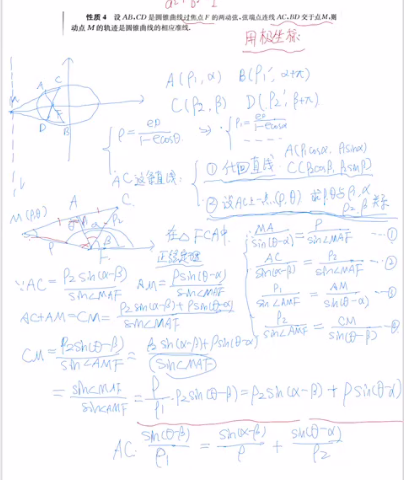 性质4 设AB,CD是圆锥曲线过焦点F的两动弦,弦端点连线AC,BD交于点M,则
动点M的轨迹是圆锥曲线的相应准线.
用极坐标
A(ρ₁,α) B(ρ₁',α+π)
C(ρ₂,β) D(ρ₂',β+π)
ρ = ep/1-ecosθ ⇒ ρ₁ = ep/1-ecosα
AC这条直线:
① 代回直线 A(ρ₁cosα, ρ₁sinα) C(ρ₂cosβ, ρ₂sinβ)
② 设AC上一点(ρ,θ) 前ρ,θ与ρ₁,α ρ₂,β关系
M(ρ,θ) A C F
在△FCA中
正弦定理
MA/sin(θ-α) = ρ/sin∠MAF ①
AC/sin(α-β) = ρ₂/sin∠MAF ②
ρ₁/sin∠AMF = AM/sin(θ-α)
ρ₂/sin∠AMF = CM/sin(θ-β) ③
∵AC = ρ₂sin(α-β)/sin∠MAF AM = ρsin(θ-α)/sin∠MAF
AC+AM=CM= ρ₂sin(α-β)+ρsin(θ-α)/sin∠MAF
CM = ρ₂sin(θ-β)/sin∠AMF = ρ₂sin(α-β)+ρsin(θ-α)/sin∠MAF
= sin∠MAF/sin∠AMF = ρ/ρ₁ · ρ₂sin(θ-β) = ρ₂sin(α-β) + ρsin(θ-α)
AC: sin(θ-β)/ρ₁ = sin(α-β)/ρ + sin(θ-α)/ρ₂